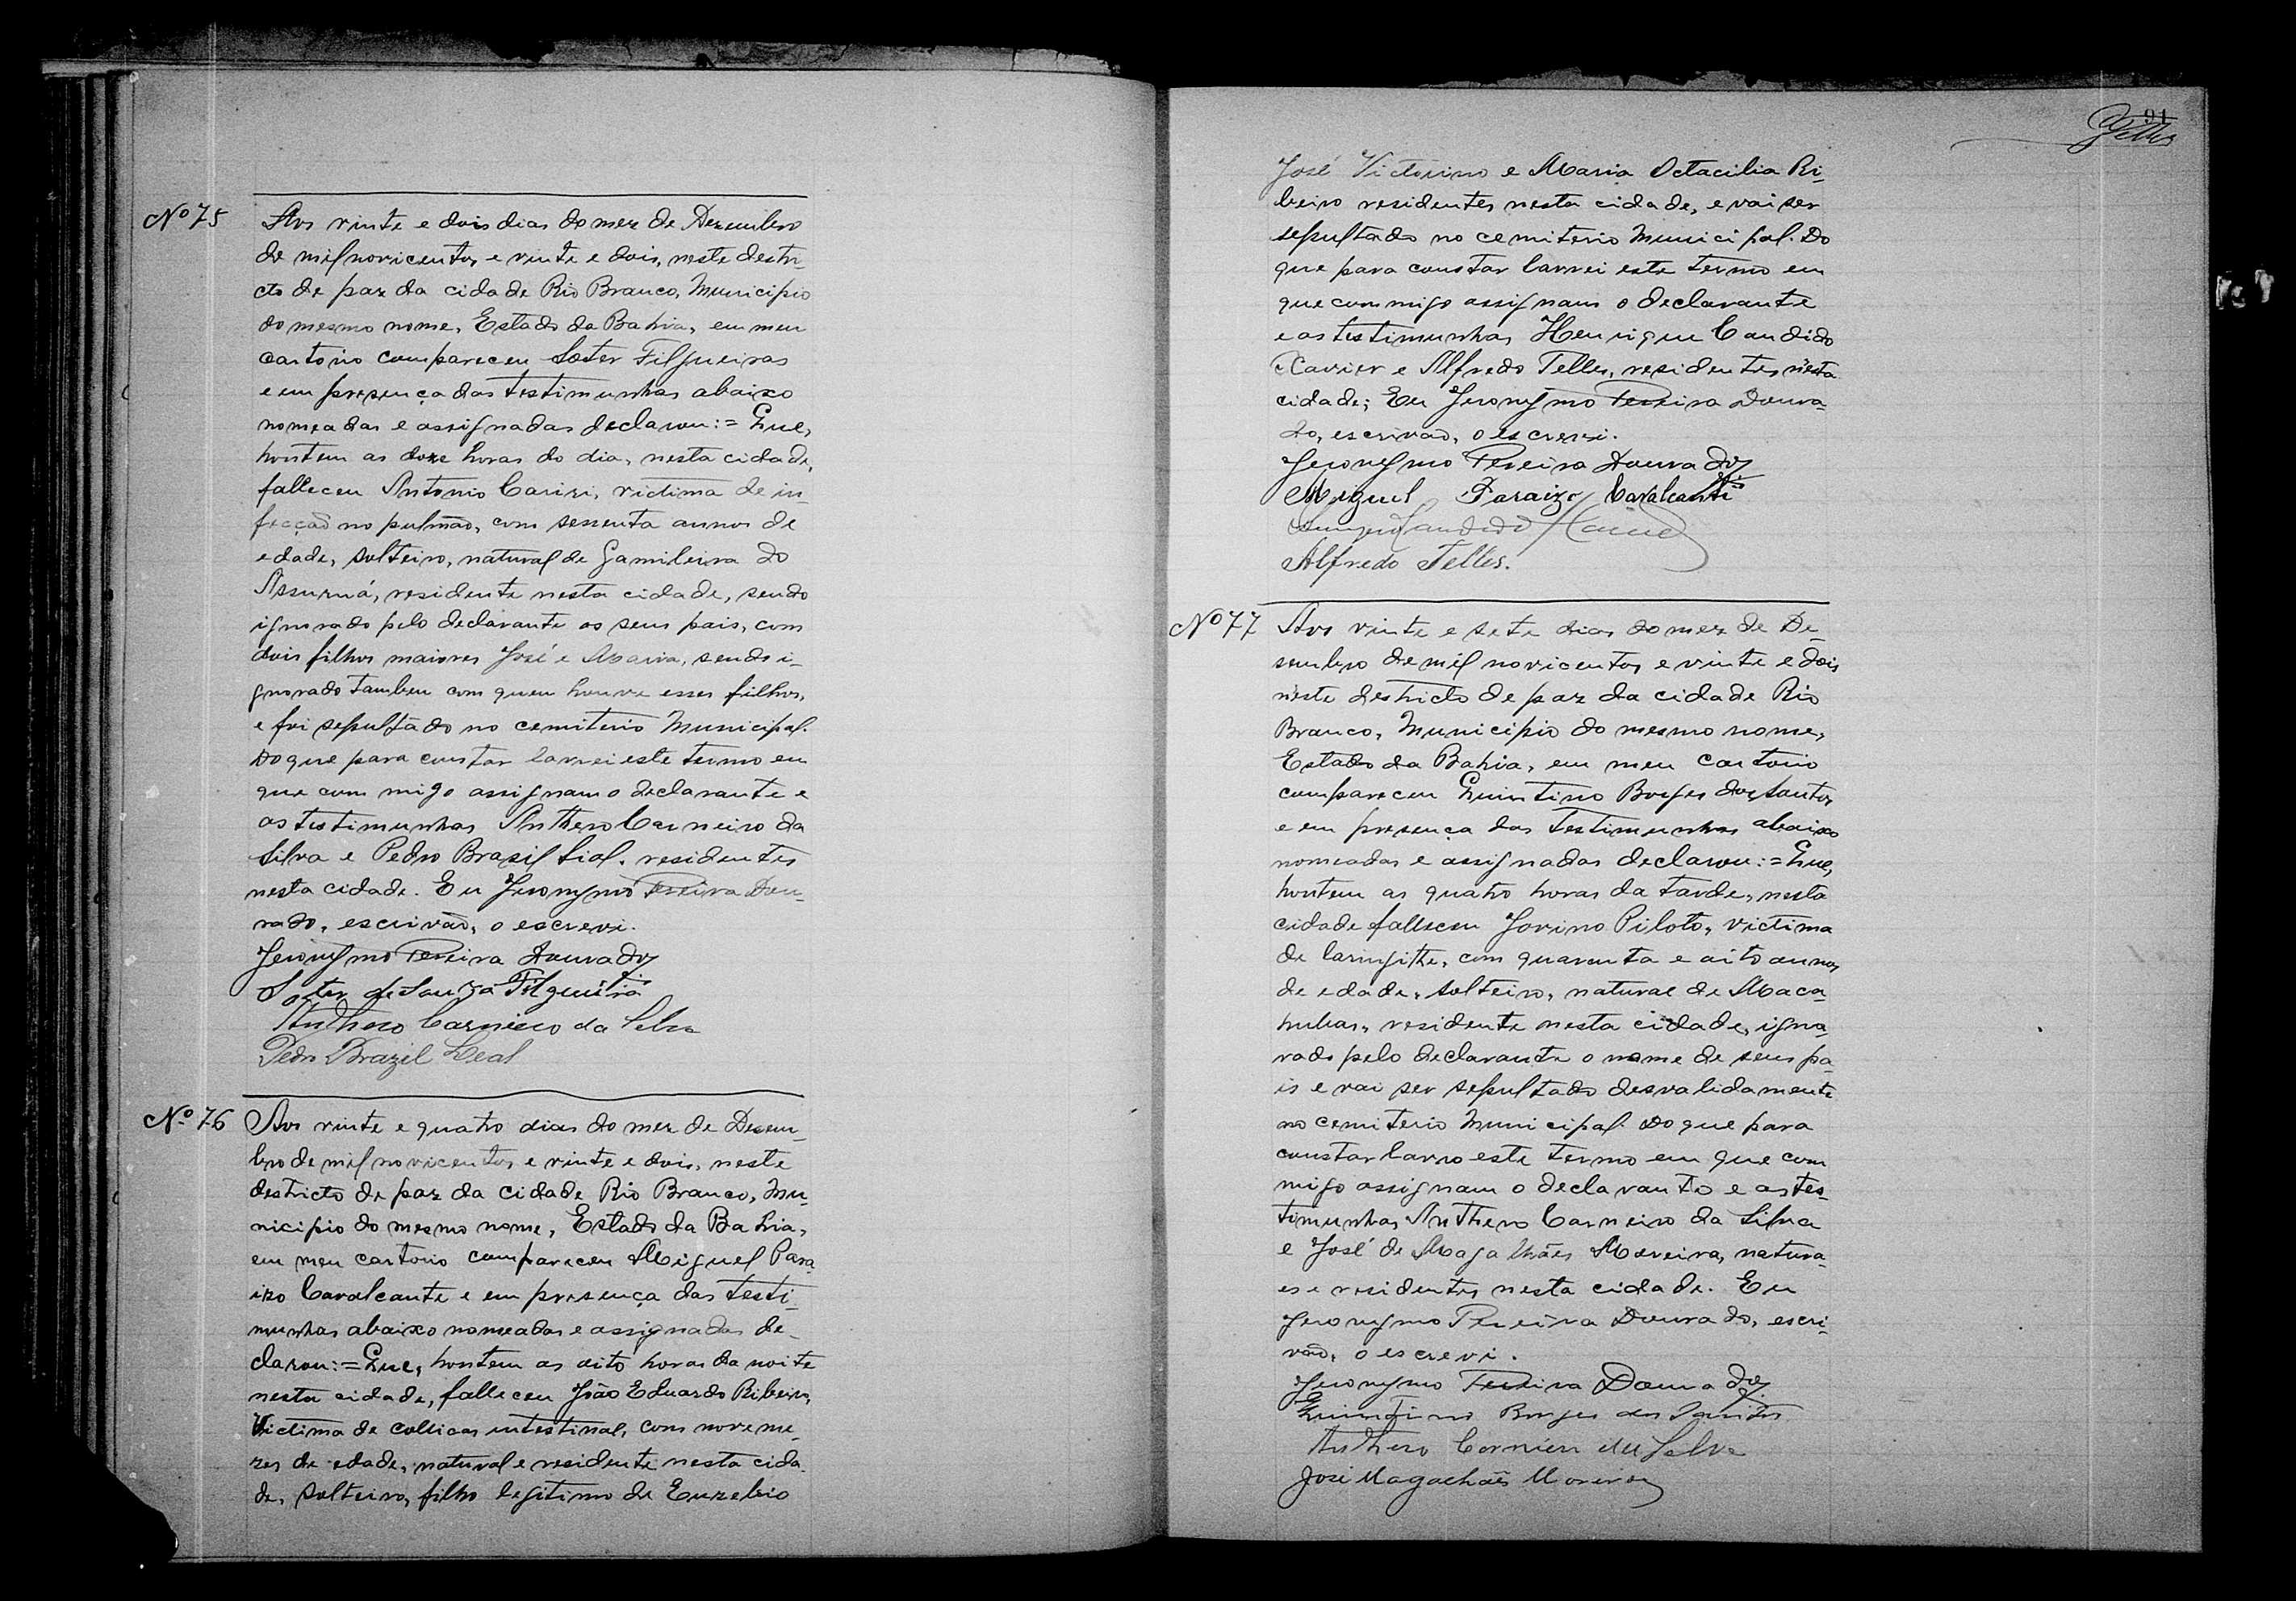 Nº 75
Aos vinte e dois dias do mez de Dezembro
de mil novicentos e vinte e dois, neste destri-
cto de paz da cidade Rio Branco, Municipio
do mesmo nome, Estado da Bahia, em meu
cartorio compareceu Soter Filgueiras
e em presença das testimunhas abaixo
nomeadas e assignadas declarou:= Que,
hontem as doze horas do dia, nesta cidade,
falleceu Antonio Cariri, victima de in-
fecção no pulmão, com sessenta annos de
edade, solteiro, natural de Gamileira do
Assuruá, residente nesta cidade, sendo
ignorado pelo declarante os seus pais, com
dois filhos maiores José e Maria, sendo i-
gnorado tambem com quem houve esses filhos,
e foi sepultado no cemiterio Municipal.
Do que para constar lavrei este termo em
que com migo assignam o declarante e
as testimunhas Anthero Carneiro da
Silva e Pedro Brazil Lial. residentes
nesta cidade. Eu Jeronymo Pereira Dou-
rado, escrivão, o escrevi.
Jeronymo Pereira Dourado
Soter de Souza Filgueira
Anthero Carneiro da Silva
Pedro Brazil Leal
Nº 76
Aos vinte e quatro dias do mez de Dezem-
bro de mil novicentos e vinte e dois, neste
destricto de paz da cidade Rio Branco, Mu-
nicipio do mesmo nome, Estado da Bahia,
em meu cartorio compareceu Miguel Para-
izo Cavalcante e em presença das testi-
munhas abaixo nomeadas e assignadas de-
clarou:= Que, hontem as oito horas da noite
nesta cidade, falleceu João Eduardo Ribeiro,
Victima de collicas intestinal, com nove me-
zes de edade, natural e residente nesta cida-
de, solteiro, filho legitimo de Euzebio
91
Telles
José Victorino e Maria Octacilia Ri-
beiro residentes nesta cidade, e vai ser
sepultado no cemiterio Municipal. Do
que para constar lavrei este termo em
que commigo assignam o declarante
e as testimunhas Henrique Candido
Xavier e Alfredo Telles, residentes nesta
cidade; Eu Jeronymo Pereira Doura-
do, escrivão, o escrevi.
Jeronymo Pereira Dourado
Miguel Paraizo Cavalcanti
Candido
Alfredo Telles.
Nº 77
Aos vinte e sete dias do mez de De-
sembro de mil novicentos e vinte e dois
neste destricto de paz da cidade Rio
Branco, Municipio do mesmo nome,
Estado da Bahia, em meu cartorio
compareceu Quintino Borges dos Santos
e em presença das testimunhas abaixo
nomeadas e assignadas declarou:= Que,
hontem as quatro horas da tarde, nesta
cidade falleceu Jovino Piloto, victima
de laringithe, com quarenta e oito annos
de edade, solteiro, natural de Maca-
hubas, residente nesta cidade, igno-
rado pelo declarante o nome de seus pa-
is e vai ser sepultado desvalidamente
no cemiterio Municipal. Do que para
constar lavro este termo em que com
migo assignam o declarante e as tes-
timunhas Anthero Carneiro da Silva
e José de Magalhães Moreira, natura-
es e residentes nesta cidade. Eu
Jeronymo Pereira Dourado, escri-
vão, o escrevi.
Jeronymo Pereira Dourado
Quintino Borges dos Santos
Anthero Carneiro da Silva
José Magalhães Moreira